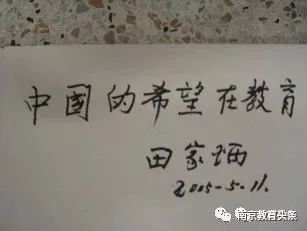 中國的希望在教育
田家炳
2005-5-11.
南京教育头条